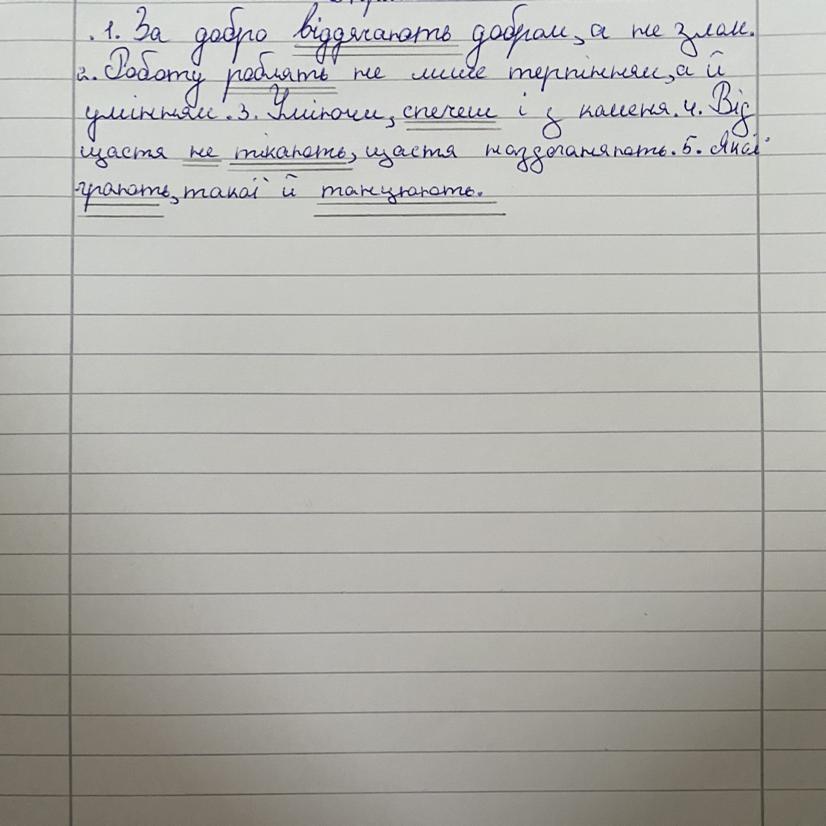 1. За добро віддячають добром, а не злом.
2. Роботу роблять не лише терпінням, а й
умінням. 3. Уміючи, спечеш і з каменя. 4. Від
щастя не тікають, щастя наздоганяють. 5. Якої
грають, такої й танцюють.